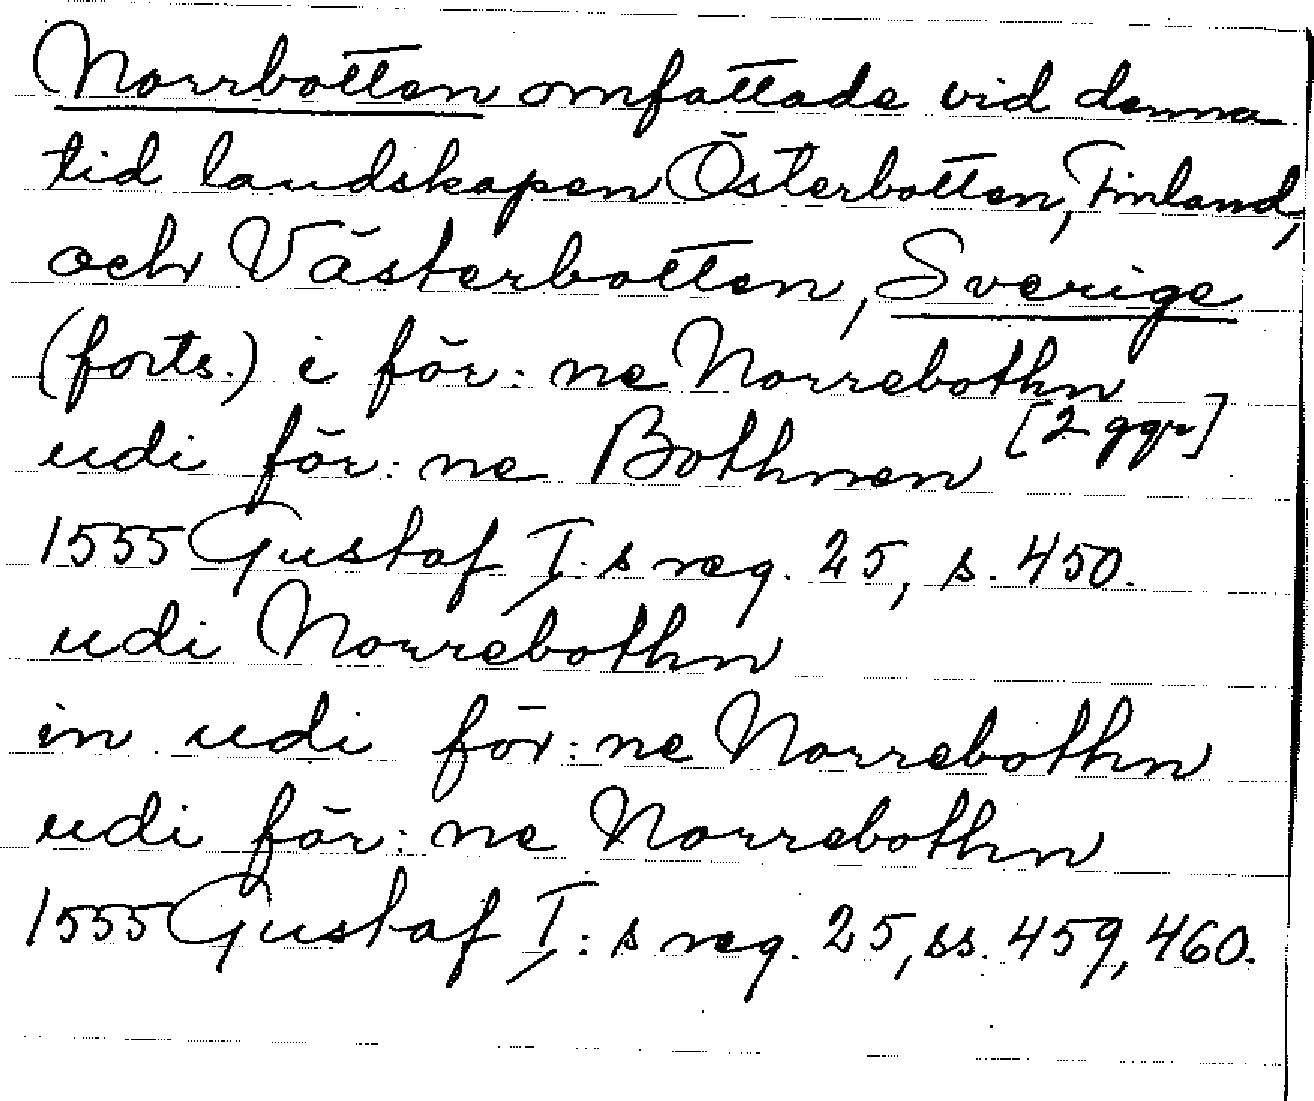 Norrbotten omfattade vid denna
tid landskapen Österbotten, Finland,
och Västerbotten, Sverige
(forts.) i för:ne Norrebothn
udi för:ne Bothnen [2 ggr]
1555 Gustaf I:s reg. 25, s. 450.
udi Norrebothn
in udi för:ne Norrebothn
udi för:ne Norrebothn
1555 Gustaf I:s reg. 25, ss. 459, 460.